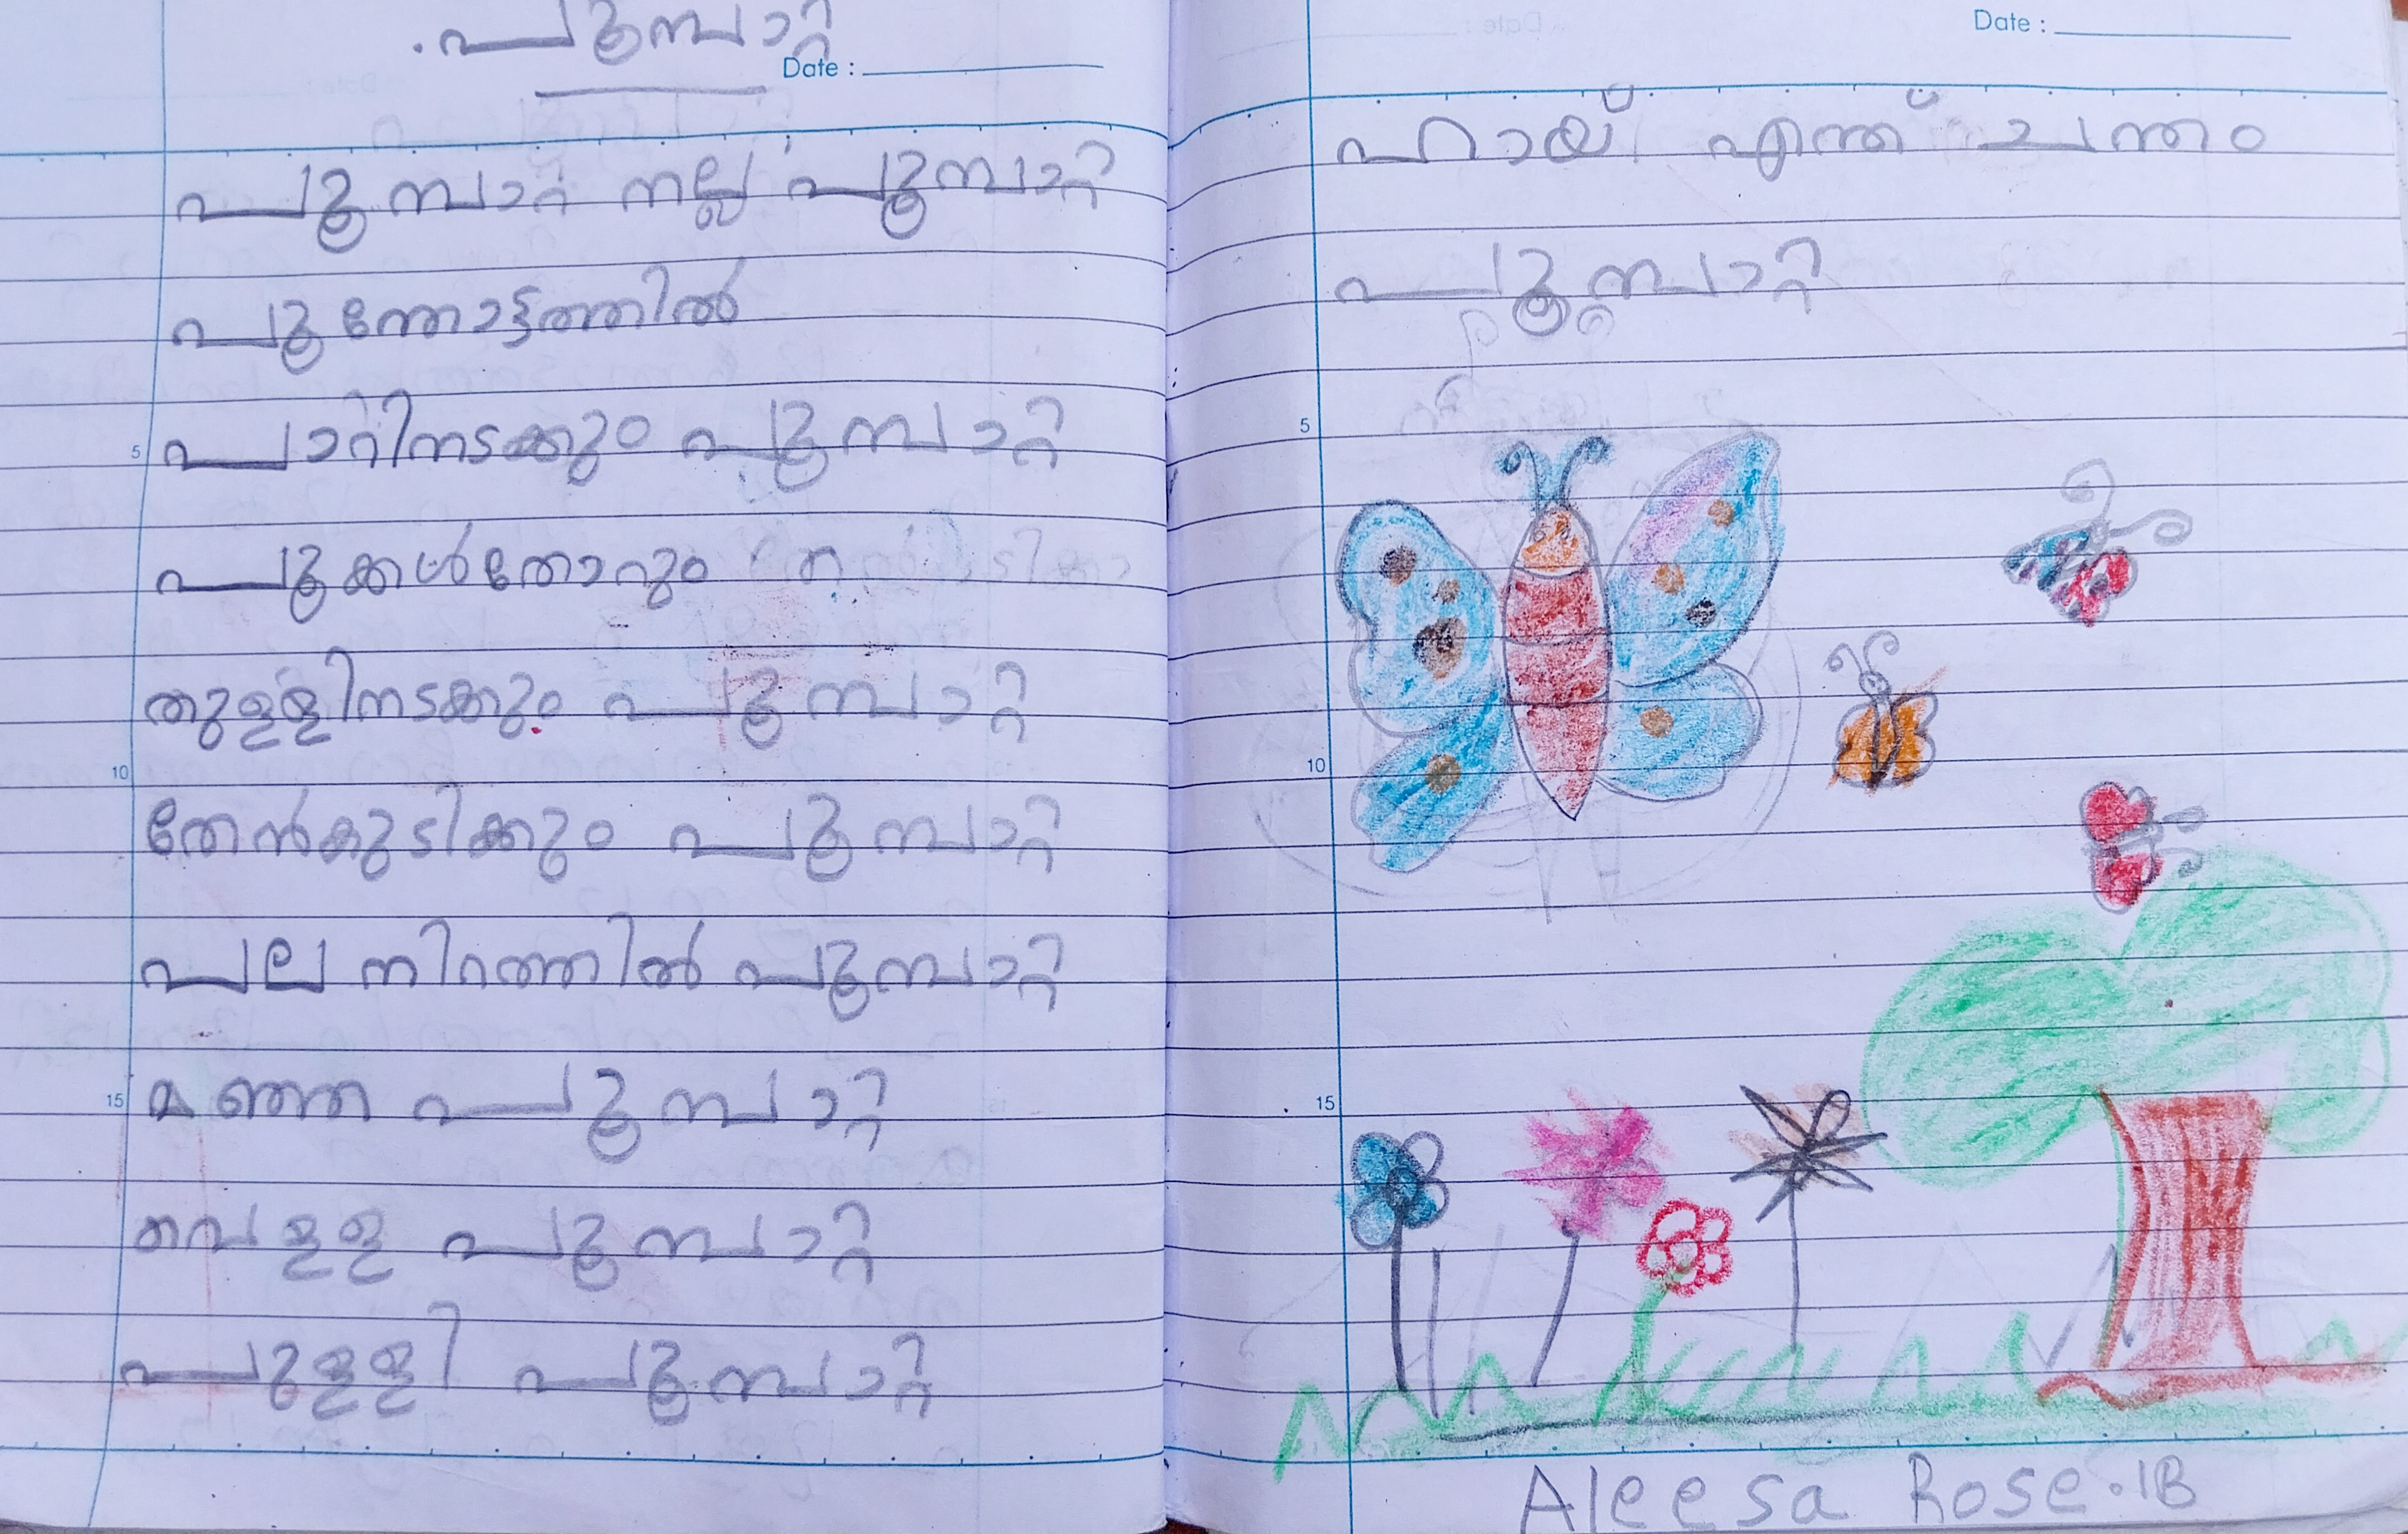 പൂമ്പാറ്റ
Date :
പൂമ്പാറ്റ നല്ല പൂമ്പാറ്റ
പൂന്തോട്ടത്തിൽ
5 പാറിനടക്കും പൂമ്പാറ്റ
പൂക്കൾതോറും
തുള്ളിനടക്കും പൂമ്പാറ്റ
10
തേൻകുടിക്കും പൂമ്പാറ്റ
പല നിറത്തിൽ പൂമ്പാറ്റ
15 മഞ്ഞ പൂമ്പാറ്റ
വെള്ള പൂമ്പാറ്റ
പുള്ളി പൂമ്പാറ്റ
Date :
ഹായ് എന്ത് ചന്തം
പൂമ്പാറ്റ
5
10
15
Aleesa Rose. 1B